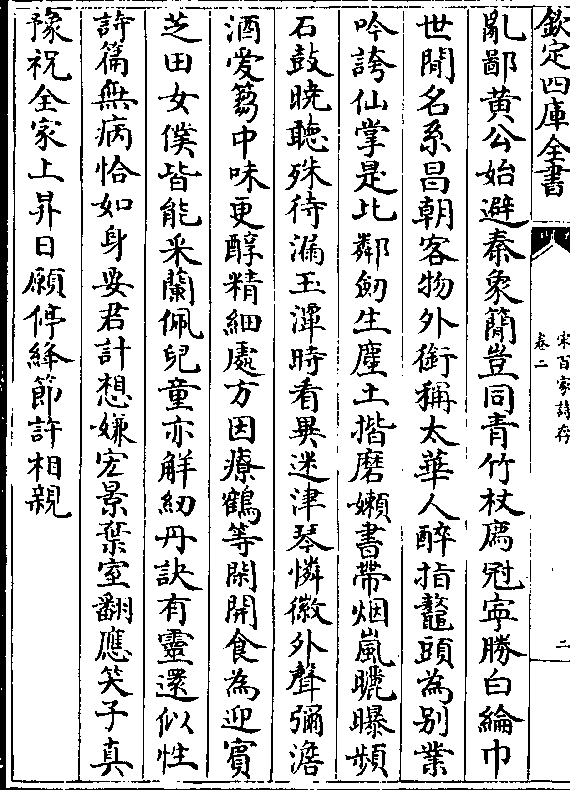 欽定四庫全書
宋百家詩存
卷二
二
亂鄙黄公始避秦象簡豈同青竹杖鳫冠寕勝白綸巾
世間名系昌朝客物外銜稱太華人醉指鼇頭為别業
吟誇仙掌是比鄰劒生塵土揩磨嬾書帶烟嵐曬曝頻
石鼓曉聽殊待漏玉潭時看異迷津琴憐徽外聲彌澹
酒愛篘中味更醇精細處方因療鶴等閑開食為迎賓
芝田女僕皆能采蘭佩兒童亦解紉丹訣有靈還似性
詩篇無病恰如身妻君計想嫌宏景棄室翻應笑子真
豫祝全家上昇日願停絳節許相親